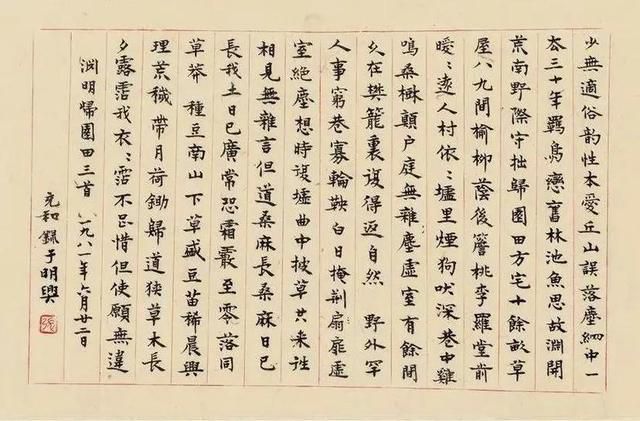 少無適俗韵性本愛丘山誤落塵網中一
去三十年羈鳥戀舊林池魚思故淵開
荒南野際守拙歸園田方宅十餘畝草
屋八九間榆柳蔭後簷桃李羅堂前
曖〻遠人村依〻墟里煙狗吠深巷中雞
鳴桑樹顛户庭無雜塵虛室有餘間
久在樊籠裏復得返自然 野外罕
人事窮巷寡輪鞅白日掩荆扇扉虛
室絕塵想時復墟曲中披草共来往
相見無雜言但道桑麻長桑麻日已
長我土日已廣常恐霜霰至零落同
草莽 種豆南山下草盛豆苗稀晨興
理荒穢帶月荷鋤歸道狹草木長
夕露霑我衣〻霑不足惜但使願無違
淵明歸園田三首 一九八一年六月廿二日
充和録于明興
張